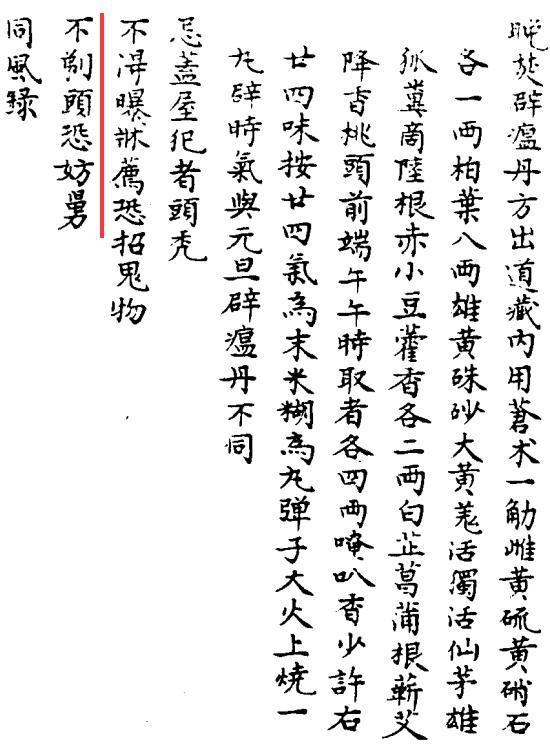 晚焚辟瘟丹方出道藏內用蒼朮一觔雌黄硫黄硝石
各一两柏葉八两雄黄硃砂大黄羗活獨活仙茅雄
狐糞商陸根赤小豆藿香各二两白芷菖蒲根蘄艾
降香桃頭前端午午時取者各四两唵叭香少許右
廿四味按廿四氣為末米糊為丸弹子大火上燒一
丸辟時氣與元旦辟瘟丹不同
忌蓋屋犯者頭秃
不浔曝牀薦恐招鬼物
不剃頭恐妨舅
同風録